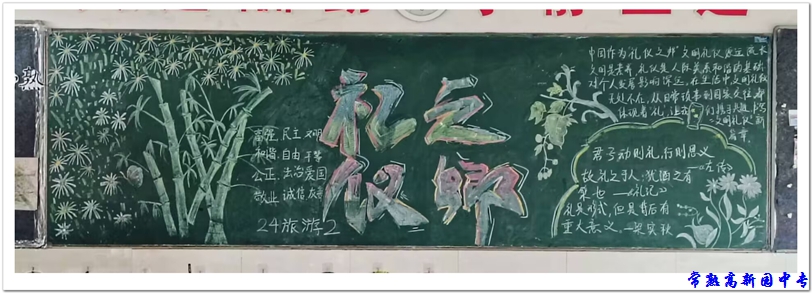 礼仪之乡
富强 民主 文明
和谐 自由 平等
公正 法治 爱国
敬业 诚信 友善
24旅游2
中国作为"礼仪之邦"文明礼仪源远流长
文明是素养 礼仪是人际关系和活动基础
对于人类有影响深远 在生活中文明礼仪
无处不在,从日常琐事到国家交往都
体现着"礼"
"文明礼仪"新
篇章.
君子动则思礼,行则思义
——左传
故礼之于人,犹酒之有
蘖也 —《礼记》
礼是形式,但是背后有
重大意义.—梁实秋
常熟高新园中专